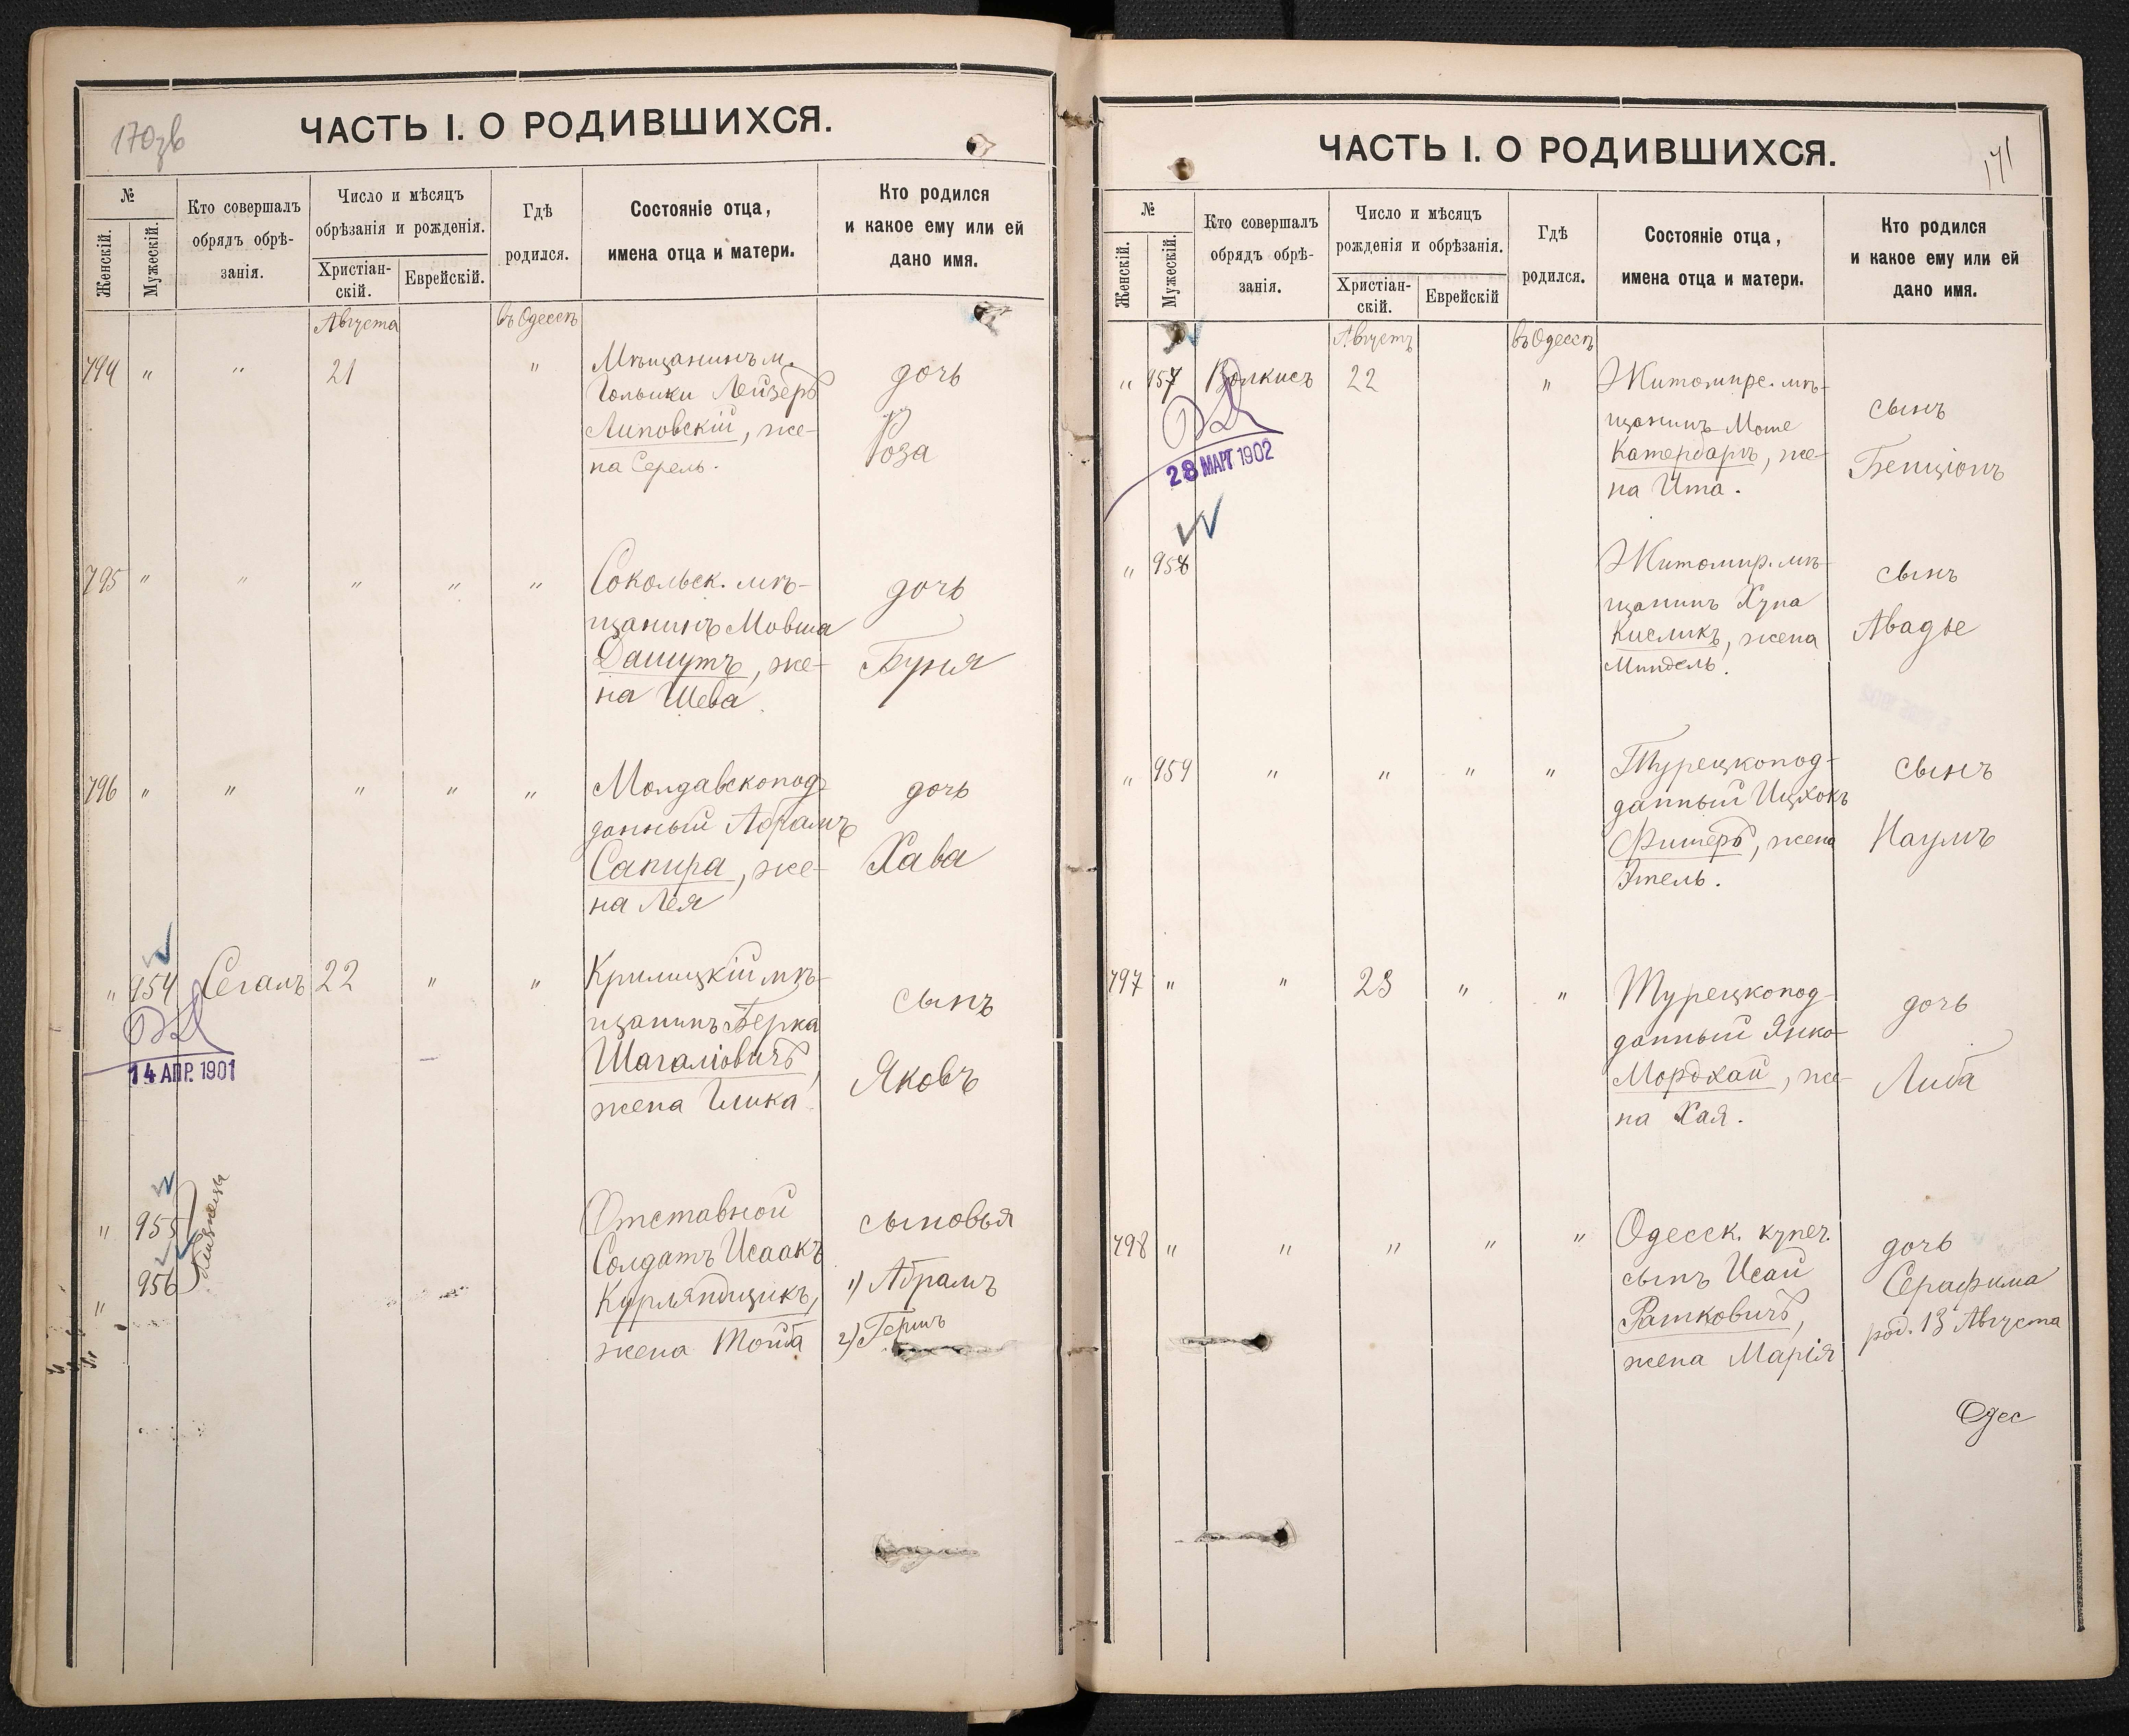 170зв
ЧАСТЬ I. О РОДИВШИХСЯ.
№
Женскій.
Мужескій.
Кто совершалъ
обрядъ обрѣ-
занія.
Число и мѣсяцъ
обрѣзанія и рожденія.
Христіан-
скій.
Еврейскій.
Гдѣ
родился.
Состояніе отца,
имена отца и матери.
Кто родился
и какое ему или ей
дано имя.
Августа
въ Одессѣ
794 " " 21 "
Мѣщанинъ м.
Лейзеръ
Липовскій, же-
на Серель.
дочь
Роза
795 " " " " "
Сокольск. мѣ-
щанинъ Мовша
Дашутъ, же-
на Шева
дочь
Буня
796 " " " " "
Молдавскопод-
данный Абрамъ
Сапира, же-
на Лея
дочь
Хава
" 954 Сегалъ 22 " "
мѣ-
щанинъ Берка
Шагаліовичъ,
жена
сынъ
Яковъ
14 АПР. 1901
" 955
" 956
близнецы
Отставной
Солдатъ Исаакъ
Курляндщикъ,
жена Тойба
сыновья
1) Абрамъ
2) Гершъ
171
ЧАСТЬ I. О РОДИВШИХСЯ.
№
Женскій.
Мужескій.
Кто совершалъ
обрядъ обрѣ-
занія.
Число и мѣсяцъ
рожденія и обрѣзанія.
Христіан-
скій.
Еврейскій
Гдѣ
родился.
Состояніе отца,
имена отца и матери.
Кто родился
и какое ему или ей
дано имя.
Августъ
въ Одессѣ
" 957 Волкисъ 22 "
Житомирс. мѣ-
щанинъ Моше
Катербаръ, же-
на Ита.
сынъ
Бенціонъ
28 МАРТ 1902
" 958
Житомир. мѣ-
щанинъ Хуна
Кисликъ, жена
Миндель.
сынъ
Авадье
" 959 " " " "
Турецкопод-
данный Ицхокъ
Фишеръ, жена
Этель.
сынъ
Наумъ
797 " " 23 " "
Турецкопод-
данный Янко-
Мордхай, же-
на Хая.
дочь
Либа
798 " " " " "
Одесск. купеч.
сынъ Исай
Рашковичъ,
жена Марія
дочь
Серафима
род. 13 Августа
Одес